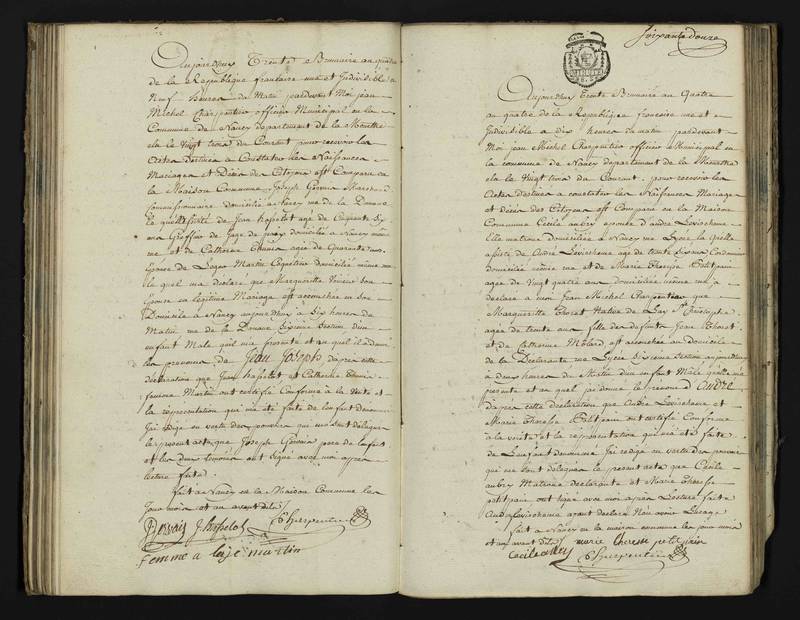 Aujourdhuy Trente Brumaire an quatre
de la Republique francaise une et Indivisible a
Neuf heures du Matin pardevant Moi jean
Michel Charpentier officier Municipal en la
Commune de Nancy departement de la Meurthe
elu le Vingt trois du Courant pour recevoir les
Actes destinés a Constater les Naissances
Mariages et Décès des Citoyens est Comparu en
la Maison Commune Joseph Gervais Marchand
domicilié a Nancy rue de la Douane
le quel assisté de Jean hasselot agé de Cinquante six
ans Greffier de Juge de paix domicilié a Nancy même
rue et de Catherine agée de Quarante ans
Epouse de Leger Martin domiciliée même rue
le quel ma declaré que Margueritte son
Epouse en legitime Mariage est accouchée en son
Domicile a Nancy aujourdhuy a Six heures du
Matin rue de la Douane Sixieme Section dun
enfant Male quil ma presenté et au quel il a donné
les prenoms de Jean Joseph dapres cette
declaration que Jean hasselot et Catherine
femme Martin ont certifié Conforme a la Verité et
la representation qui ma été faite de lenfant denommé
jai redigé en vertu des pouvoirs qui me sont délégués
le present acte, que Joseph Gervais pere de lenfant
et les deux temoins ont signé avec moi apres
lecture faite.
fait a Nancy en la Maison Commune les
jour mois et an avant dits
Gervais J hasselot Charpentier
femme a leije martin
soixante douze
Aujourdhuy trente Brumaire an Quatre
an quatre de la Republique francoise une et
Indivisible a dix heures du matin pardevant
Moi jean Michel Charpentier officier Municipal en
la commune de Nancy departement de la Meurthe
elu le Vingt trois du Courant pour recevoir les
Actes destinés a constater les Naissances Mariages
et décès des Citoyens est Comparu en la Maison
Commune Cécile aubry epouse d'andré Levischeme
Elle matrone domiciliée a Nancy rue Lycée la quelle
assistée de André Levischeme agé de trente six ans Cordonnier
domicilié même rue et de Marie Therese Petitpain
agée de Vingt quatre ans domiciliée même rue a
declaré a moi Jean Michel Charpentier que
Margueritte Thoret Native de Lay St Christophe
agée de trente ans fille des defunts Jean Thoret
et de Catherine Molard est accouchée au domicile
de la Declarante rue Lycée Sixieme Section aujourdhuy
a deux heures du Matin dun enfant Mâle quelle ma
presenté et au quel jai donné le prénom d'André
d'apres cette declaration que André Levischeme et
Marie Therese Petitpain ont certifié Conforme
a la verité et la representation qui ma été faite
de Lenfant denommé Jai redigé en vertu des pouvoirs
qui me sont delegués le present acte que Cecile
aubry Matrone declarante et Marie Therese
petitpain ont signé avec moi après Lecture faite
André Levischeme ayant declaré Nen avoir Lusage
fait a Nancy en la maison commune les jour mois
et an avant dits marie therese petit pain
Cecile aubry Charpentier